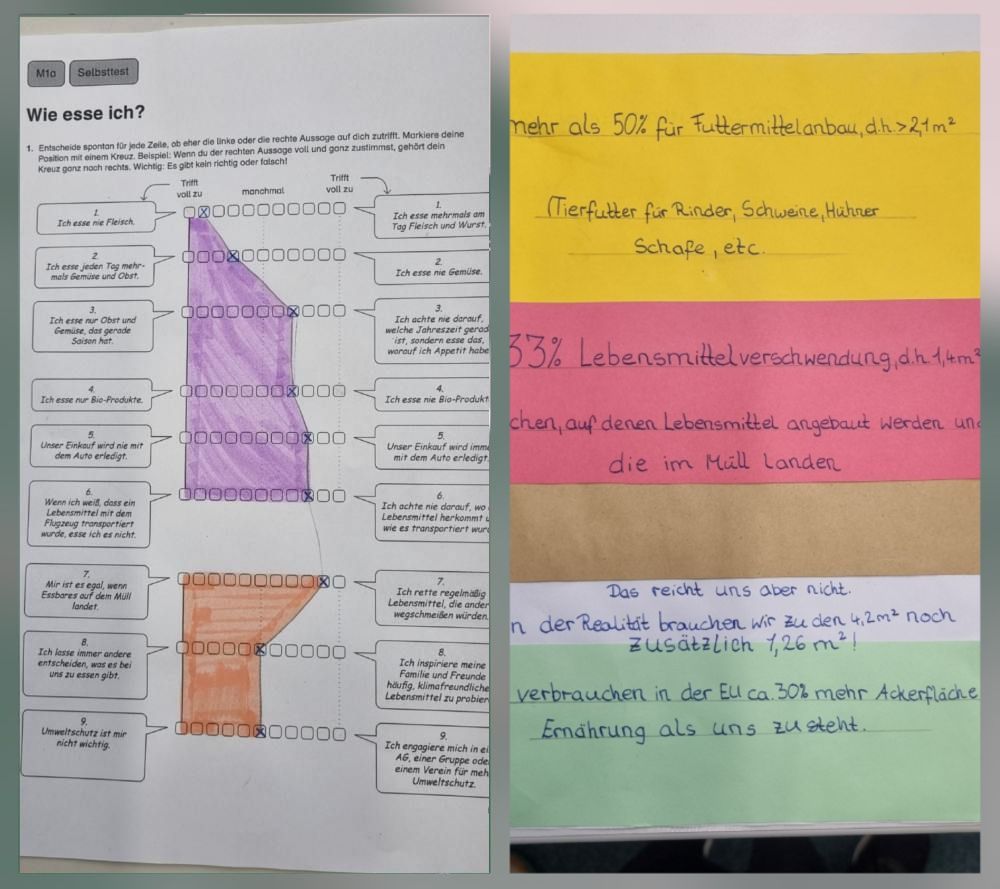 M1a
Selbsttest
Wie esse ich?
1. Entscheide spontan für jede Zeile, ob eher die linke oder die rechte Aussage auf dich zutrifft. Markiere deine
Position mit einem Kreuz. Beispiel: Wenn du der rechten Aussage voll und ganz zustimmst, gehört dein
Kreuz ganz nach rechts. Wichtig: Es gibt kein richtig oder falsch!
Trifft
voll zu
manchmal
Trifft
voll zu
1.
Ich esse nie Fleisch.
1.
Ich esse mehrmals am
Tag Fleisch und Wurst.
2.
Ich esse jeden Tag mehr-
mals Gemüse und Obst.
2.
Ich esse nie Gemüse.
3.
Ich esse nur Obst und
Gemüse, das gerade
Saison hat.
3.
Ich achte nie darauf,
welche Jahreszeit gerad
ist, sondern esse das,
worauf ich Appetit habe
4.
Ich esse nur Bio-Produkte.
4.
Ich esse nie Bio-Produkt
5.
Unser Einkauf wird nie mit
dem Auto erledigt.
5.
Unser Einkauf wird imme
mit dem Auto erledigt.
6.
Wenn ich weiß, dass ein
Lebensmittel mit dem
Flugzeug transportiert
wurde, esse ich es nicht.
6.
Ich achte nie darauf, wo
Lebensmittel herkommt u
wie es transportiert wurd
7.
Mir ist es egal, wenn
Essbares auf dem Müll
landet.
7.
Ich rette regelmäßig
Lebensmittel, die ander
wegschmeißen würden.
8.
Ich lasse immer andere
entscheiden, was es bei
uns zu essen gibt.
8.
Ich inspiriere meine
Familie und Freunde
häufig, klimafreundliche
Lebensmittel zu probier
9.
Umweltschutz ist mir
nicht wichtig.
9.
Ich engagiere mich in ei
AG, einer Gruppe ode
einem Verein für meh
Umweltschutz.
mehr als 50% für Futtermittelanbau, d.h. >2,1m²
(Tierfutter für Rinder, Schweine, Hühner
Schafe, etc.
33% Lebensmittelverschwendung, d.h. 1,4m²
chen, auf denen Lebensmittel angebaut werden und
die im Müll landen
Das reicht uns aber nicht.
n der Realität brauchen wir zu den 4,2m² noch
zusätzlich 1,26 m²!
verbrauchen in der EU ca. 30% mehr Ackerfläche
Ernährung als uns zusteht.